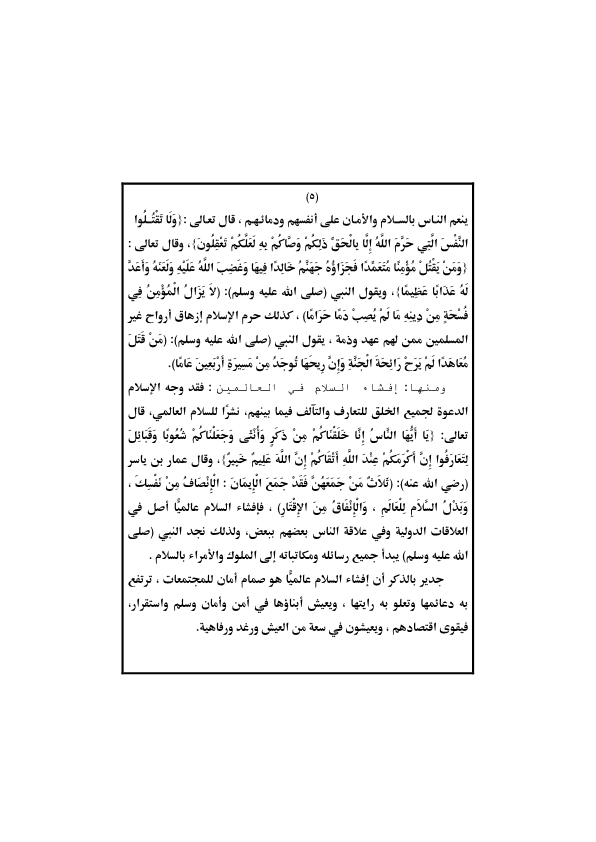 (٥)
ينعم الناس بالسلام والأمان على أنفسهم ودمائهم ، قال تعالى :{وَلَا تَقْتُلُوا
النَّفْسَ الَّتِي حَرَّمَ اللَّهُ إِلَّا بِالْحَقِّ ذَلِكُمْ وَصَّاكُمْ بِهِ لَعَلَّكُمْ تَعْقِلُونَ}، وقال تعالى :
{وَمَنْ يَقْتُلْ مُؤْمِنًا مُتَعَمِّدًا فَجَزَاؤُهُ جَهَنَّمُ خَالِدًا فِيهَا وَغَضِبَ اللَّهُ عَلَيْهِ وَلَعَنَهُ وَأَعَدَّ
لَهُ عَذَابًا عَظِيمًا}، ويقول النبي (صلى الله عليه وسلم): (لاَ يَزَالُ الْمُؤْمِنُ فِي
فُسْحَةٍ مِنْ دِينِهِ مَا لَمْ يُصِبْ دَمًا حَرَامًا) ، كذلك حرم الإسلام إزهاق أرواح غير
المسلمين ممن لهم عهد وذمة ، يقول النبي (صلى الله عليه وسلم): (مَنْ قَتَلَ
مُعَاهَدًا لَمْ يَرَحْ رَائِحَةَ الْجَنَّةِ وَإِنَّ رِيحَهَا تُوجَدُ مِنْ مَسِيرَةِ أَرْبَعِينَ عَامًا).
ومنها: إفشاء السلام في العالمين : فقد وجه الإسلام
الدعوة لجميع الخلق للتعارف والتآلف فيما بينهم، نشرًا للسلام العالمي، قال
تعالى: {يَا أَيُّهَا النَّاسُ إِنَّا خَلَقْنَاكُمْ مِنْ ذَكَرٍ وَأُنْثَى وَجَعَلْنَاكُمْ شُعُوبًا وَقَبَائِلَ
لِتَعَارَفُوا إِنَّ أَكْرَمَكُمْ عِنْدَ اللَّهِ أَتْقَاكُمْ إِنَّ اللَّهَ عَلِيمٌ خَبِيرٌ}، وقال عمار بن ياسر
(رضي الله عنه): (ثَلاَثٌ مَنْ جَمَعَهُنَّ فَقَدْ جَمَعَ الْإِيمَانَ : الْإِنْصَافُ مِنْ نَفْسِكَ ،
وَبَذْلُ السَّلاَمِ لِلْعَالَمِ ، وَالْإِنْفَاقُ مِنَ الإِقْتَارِ) ، فإفشاء السلام عالميًّا أصل في
العلاقات الدولية وفي علاقة الناس بعضهم ببعض، ولذلك نجد النبي (صلى
الله عليه وسلم) يبدأ جميع رسائله ومكاتباته إلى الملوك والأمراء بالسلام .
جدير بالذكر أن إفشاء السلام عالميًّا هو صمام أمان للمجتمعات ، ترتفع
به دعائمها وتعلو به رايتها ، ويعيش أبناؤها في أمن وأمان وسلم واستقرار،
فيقوى اقتصادهم ، ويعيشون في سعة من العيش ورغد ورفاهية.